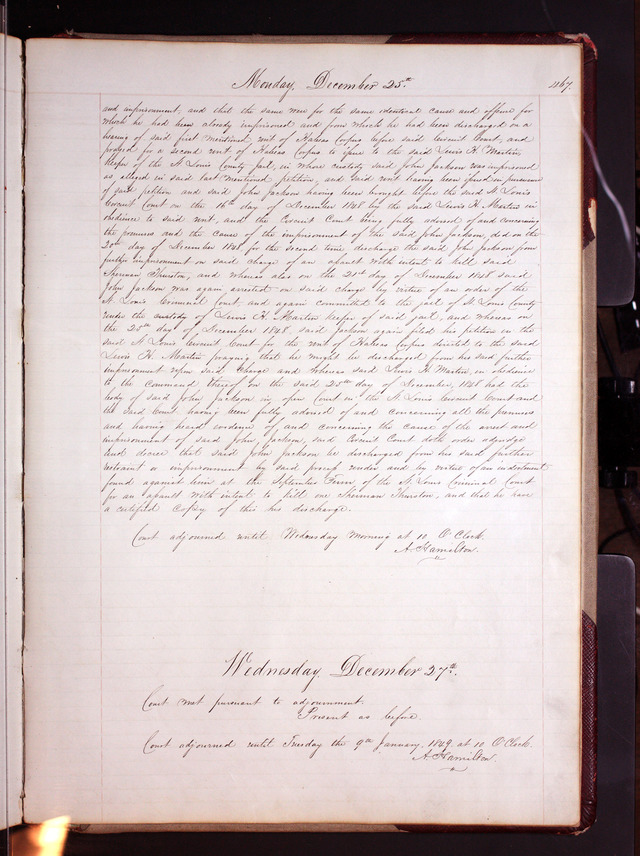 Monday, December 25th
467.
and imprisonment, and that the same was for the same identical cause and offence for
which he had been already imprisoned and from which he had been discharged on a
hearing of said first mentioned writ of Habeas Corpus before said Circuit Court, and
prayed for a second writ of Habeas Corpus to issue to the said Lewis H. Martin,
Keeper of the St Louis County jail, in whose custody said John Jackson was imprisoned
as alleged in said last mentioned petition, and said writ having been issued in pursuance
of said petition and said John Jackson having been brought before the said St Louis
Circuit Court on the 16th day of November 1848 by the said Lewis H. Martin in
obedience to said writ, and the Circuit Court being fully advised of and concerning
the premises and the cause of the imprisonment of the said John Jackson, did on the
20th day of November 1848 for the second time discharge the said John Jackson from
further imprisonment on said charge of an assault with intent to kill said
Sherman Thurston, and whereas also on the 21st day of November 1848 said
John Jackson was again arrested on said charge by virtue of an order of the
St Louis Criminal Court and again committed to the jail of St Louis County
under the custody of Lewis H. Martin keeper of said jail, and whereas on
the 25th day of November 1848, said Jackson again filed his petition in the
said St Louis Circuit Court for the writ of Habeas Corpus directed to the said
Lewis H. Martin praying that he might be discharged from his said further
imprisonment upon said charge and whereas said Lewis H. Martin, in obedience
to the command thereof on the said 25th day of November, 1848 had the
body of said John Jackson in open Court in the St Louis Circuit Court and
the said Court having been fully advised of and concerning all the premises
and having heard evidence of and concerning the cause of the arrest and
imprisonment of said John Jackson, said Circuit Court doth order adjudge
and decree that said John Jackson be discharged from his said further
restraint or imprisonment by said process under and by virtue of an indictment
found against him at the September Term of the St Louis Criminal Court
for an assault with intent to kill one Sherman Thurston, and that he have
a certified copy of this his discharge.
Court adjourned until Wednesday Morning at 10 O'Clock.
A. Hamilton.
Wednesday, December 27th.
Court met pursuant to adjournment.
Present as before.
Court adjourned until Tuesday the 9th January, 1849, at 10 O'Clock.
A. Hamilton.